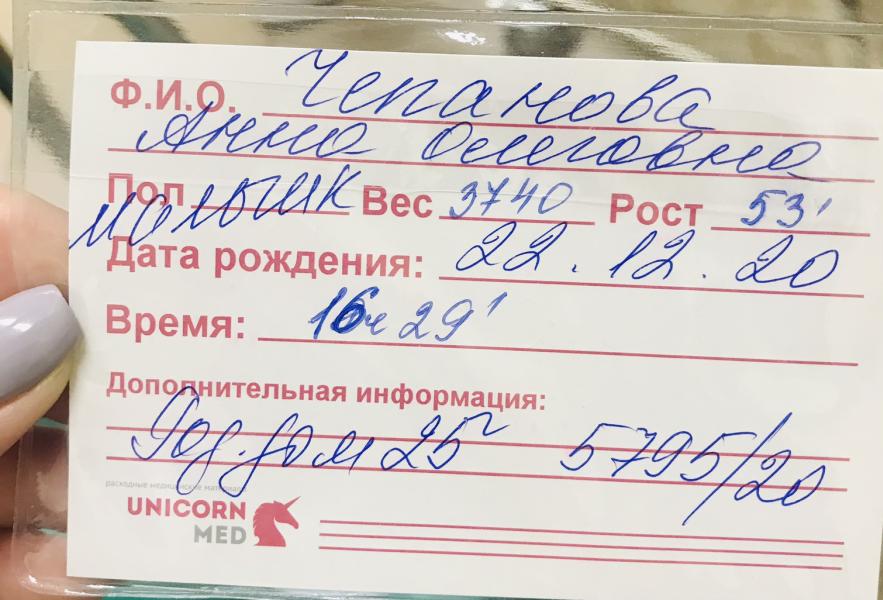 Ф.И.О. Чепанова
Анна Олеговна
Пол мальчик Вес 3740 Рост 53'
Дата рождения: 22.12.20
Время: 16ч 29'
Дополнительная информация:
Род.дом 25 5795/20
расходные медицинские материалы
UNICORN
MED